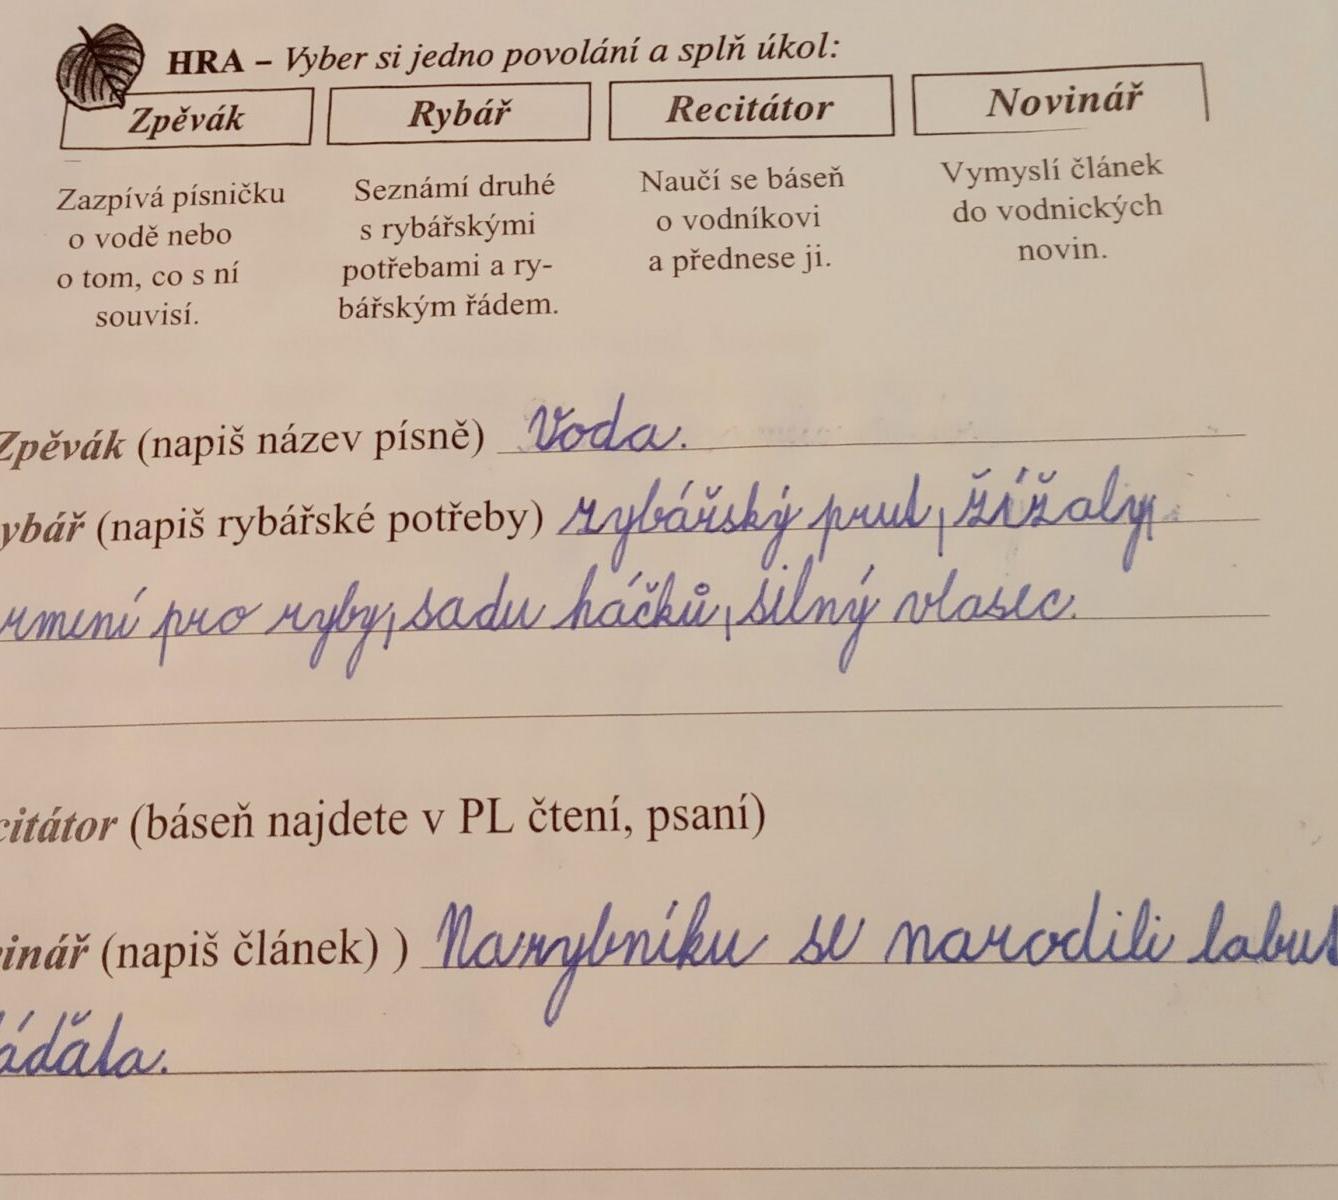 HRA – Vyber si jedno povolání a splň úkol:
Zpěvák Rybář Recitátor Novinář
Zazpívá písničku
o vodě nebo
o tom, co s ní
souvisí.
Seznámí druhé
s rybářskými
potřebami a ry-
bářským řádem.
Naučí se báseň
o vodníkovi
a přednese ji.
Vymyslí článek
do vodnických
novin.
Zpěvák (napiš název písně) Voda.
ybář (napiš rybářské potřeby) rybářský prut, žížaly,
rmení pro ryby, sadu háčků, silný vlasec.
citátor (báseň najdete v PL čtení, psaní)
inář (napiš článek) ) Narybníku se narodili labut
áďala.